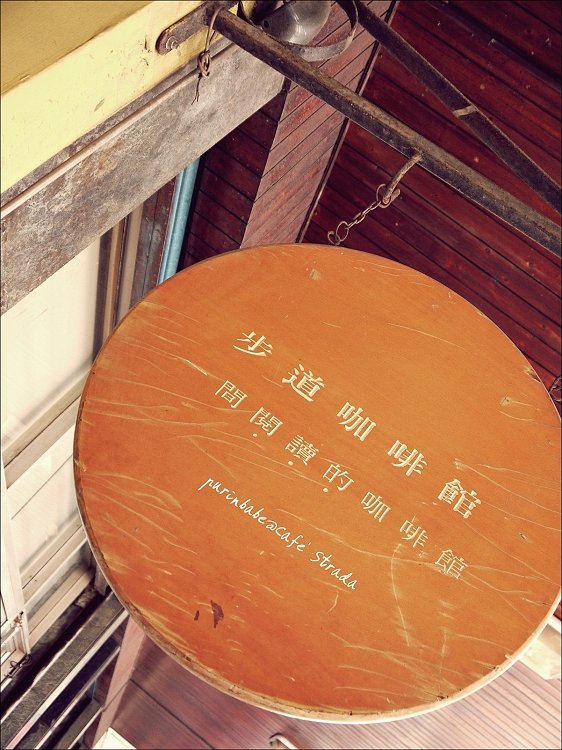 步道咖啡館
間閱讀的咖啡館
purinbabe@Café Strada